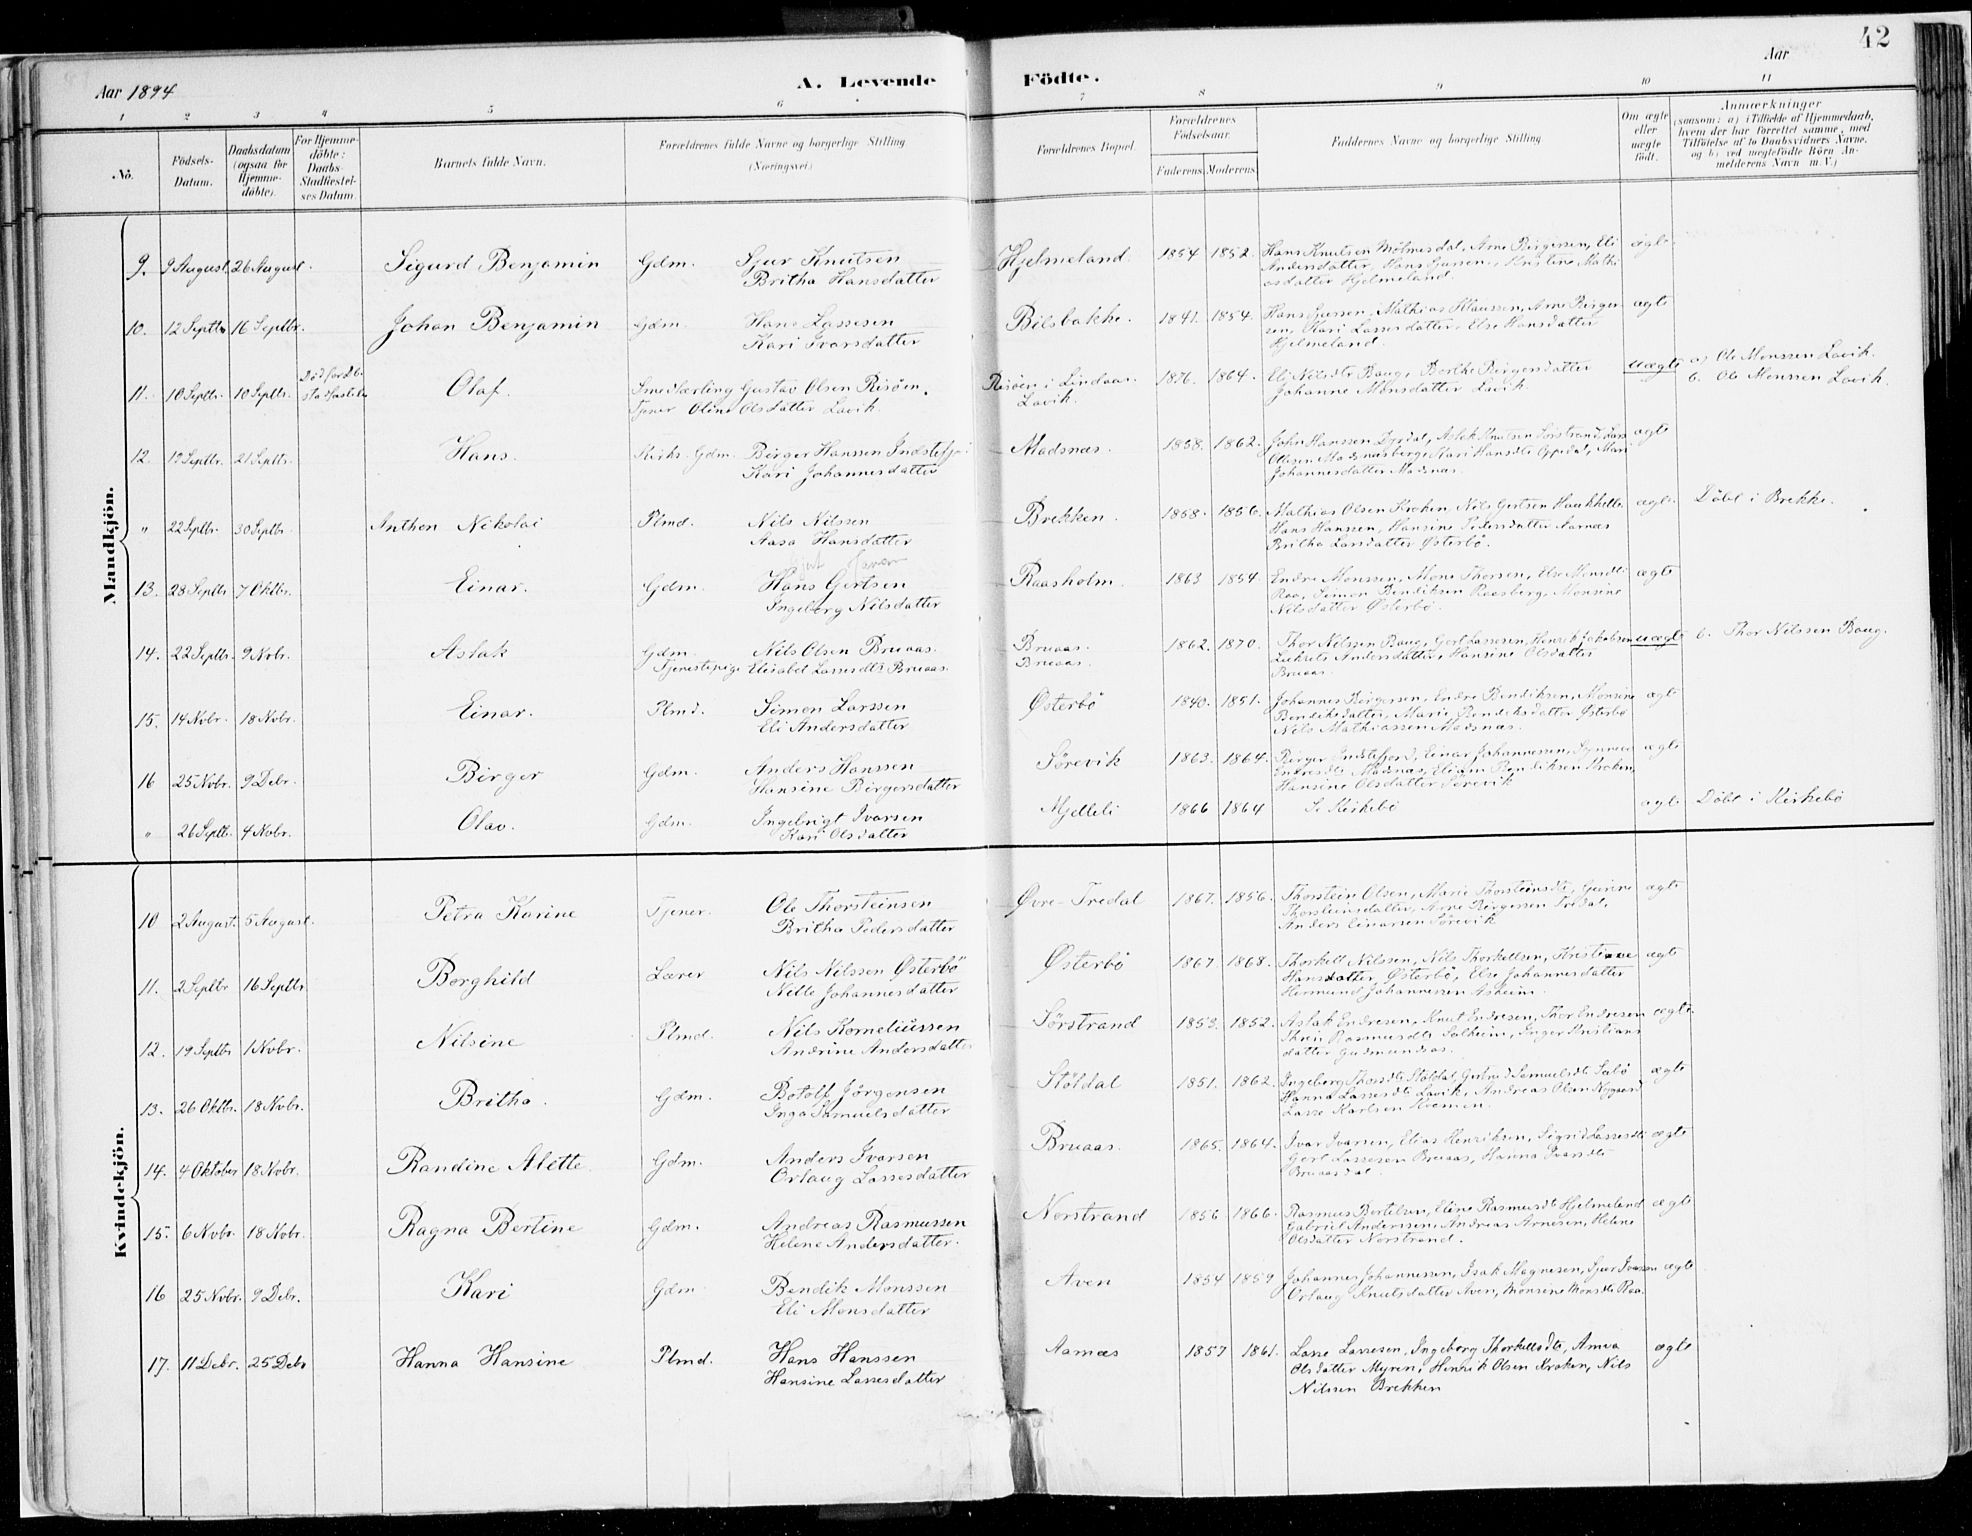 42
Aar 1894
A. Levende
Födte.
Aar
1 2 3 4 5 6 7 8 9 10 11
No.
Födsels-Datum.
Daabsdatum (ogsaa for Hjemme-döbte).
For Hjemme-döbte: Daabs Stadfæstel-ses Datum.
Barnets fulde Navn.
Forældrenes fulde Navne og borgerlige Stilling
(Næringsvei)
Forældrenes Bopæl.
Forældrenes Födselsaar.
Faderens Moderens
Faddernes Navne og borgerlige Stilling
Om ægte eller uægte födt.
Anmærkninger
(saasom: a) i Tilfælde af Hjemmedaab,
hvem der har forrettet samme, med
Tilföielse af to Daabsvidners Navne,
og b) ved uægtefödte Börn An-
melderens Navn m. V.)
Mandkjön.
9. 9 August 26 August. Sigurd Benjamin Gdm. Sjur Knutsen Hjelmeland 1854 1852. Hans Knutsen Mölmesdal, Arne Birgersen, Eli ægte
Britha Hansdatter Andersdatter, Hans Gjersen, Kristine Mathi
asdatter Hjelmeland.
10. 12 Septbr 16 Septbr. Johan Benjamin Gdm. Hans Lassesen Bilsbakke. 1841. 1854. Hans Gjersen, Mathias Klaussen, Arne Birger- ægte
Kari Ivarsdatter sen, Kari Lassesdatter, Else Hansdatter
Hjelmeland.
11. 10 Septbr. 10 Septbr. Död før Db. stadfæstelse Olaf. Smedlærling Gustav Olsen Risöen. Risöen i Lindaas. 1876. 1864. Eli Nilsdtr Baug, Berthe Birgersdatter uægte a) Ole Monssen Lavik.
Tjener Oline Olsdatter Lavik. Lavik. Johanne Monsdatter Lavik. b. Ole Monssen Lavik.
12. 19 Septbr. 21 Septbr. Hans. Kirks. Gdm. Birger Hanssen Indstefj. Madsnæs. 1868. 1862. John Hanssen Dyrdal, Aslak Knutsen Sörstrand, Lars ægte
Kari Johannesdatter Olsen Madsnæsberg, Kari Hansdtr Oppedal, Mari
Johannesdatter Madsnæs.
" 22 Septbr. 30 Septbr. Anthon Nikolai Plmd. Nils Nilssen Brekken. 1858. 1856. Mathias Olsen Kroken, Nils Gertsen Haukhelle ægte. Döbt i Brekke.
Aasa Hansdatter Hans Hanssen, Hansine Pedersdatter Aarnæs
Britha Larsdatter Østerbö.
13. 28 Septbr 7 Oktbr. Einar. Gdm. Hans Gertsen Raasholm. 1863 1854. Endre Monssen, Mons Thorsen, Else Monsdtr ægte
Ingeborg Nilsdatter Raa, Simon Bendiksen Raasberg, Monsine
Nilsdatter Østerbö.
14. 22 Septbr. 9 Novbr. Aslak Gdm. Nils Olsen Bruaas. Bruaas. 1862. 1870. Thor Nilssen Baug, Gert Lassesen, Henrik Jakobsen uægte b. Thor Nilssen Baug.
Tjenestepige Elisabet Lassesdtr Bruaas. Bruaas. Lukrets Andersdatter, Hansine Olsdatter
Bruaas.
15. 14 Novbr. 18 Novbr. Einar. Plmd. Simon Larssen Østerbö 1840. 1851. Johannes Birgersen, Endre Bendiksen, Monsine ægte
Eli Andersdatter Bendiksdatter, Marie Bendiksdatter Østerbö
Nils Mathiassen Madsnæs.
16 25 Novbr. 9 Debr. Birger Gdm. Anders Hanssen Sörevik 1863. 1864. Birger Indstefjord, Einar Johannessen, Synneva ægte
Hansine Birgersdatter Endresdtr Madsnæs, Bendiksen Kroken,
Hansine Olsdatter Sörevik
" 26 Septbr. 4 Novbr. Olav. Gdm. Ingebrigt Ivarsen Mjelleli 1866 1864 Se Kirkebö ægte Döbt i Kirkebö
Kari Olsdatter
Kvindekjön.
10 2 August. 5 August. Petra Karine Tjener. Ole Thorsteinsen Øvre-Tredal 1867. 1856. Thorstein Olsen, Marie Thorsteinsdtr, Gurine ægte
Britha Pedersdatter Thorsteinsdatter, Arne Birgersen Tredal,
Anders Einarsen Sörevik
11. 2 Septbr 16 Septbr Borghild Lærer Nils Nilssen Østerbö Østerbö 1867. 1868. Thorkell Nilssen, Nils Thorkellsen, Kristianne ægte
Nille Johannesdatter Hansdatter Østerbö, Else Johannesdatter
Hermund Johannessen Asheim.
12. 19 Septbr 1 Novbr. Nilsine Plmd. Nils Korneliussen Sörstrand 1853. 1852. Aslak Endresen, Knut Endresen, Thor Endresen ægte.
Andrine Andersdatter Rasmusdtr Solheim, Inger Kristians
datter Gudmundsas.
13. 26 Oktbr. 18 Novbr. Britha. Gdm. Botolf Jörgensen Stöldal 1851. 1862. Ingeborg Thorsdtr Stöldal, Gertrud Samuelsdtr Salö ægte
Inga Samuelsdatter Hanna Lassesdtr Lavik, Andreas Olsen Nygaard
Lasse Karlsen Hremen.
14. 4 Oktober 18 Novbr. Randine Alette. Gdm. Anders Ivarsen Bruaas. 1865. 1864. Ivar Ivarsen, Elias Henriksen, Sigrid Lassesdtr ægte
Orlaug Lassesdatter Gert Lassesen Bruaas, Hanna Ivarsdtr
Bruaasdal.
15. 6 Novbr. 18 Novbr. Ragna Bertine Gdm. Andreas Rasmussen Norstrand 1856 1866. Rasmus Bertelsen, Eline Rasmusdtr Hjelmeland ægte
Helene Andersdatter. Gabriel Anderssen, Andreas Arnesen, Helene
Olsdatter Norstrand.
16 25 Novbr. 9 Debr. Kari Gdm. Bendik Monssen Aven 1854 1859 Johannes Johannessen, Isak Magnesen, Sjur Ivarsen ægte
Eli Monsdatter Orlaug Knutsdatter Aven, Monsine Monsdtr Raa.
17. 11 Debr. 25 Debr Hanna Hansine Plmd. Hans Hanssen Aarnæs 1857 1861. Lasse Lassesen, Ingeborg Thorkellsdtr, Anna ægte
Hansine Lassesdatter Olsdatter Myren, Henrik Olsen Kroken, Nils
Nilssen Brekken